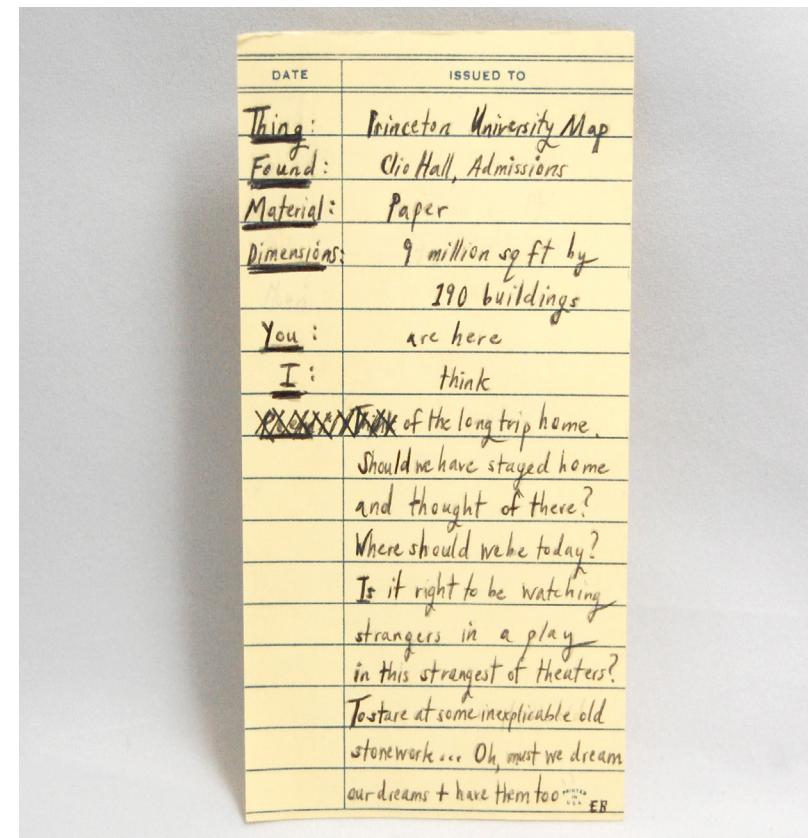 DATE ISSUED TO
Thing: Princeton University Map
Found: Clio Hall, Admissions
Material: Paper
Dimensions: 9 million sq ft by
190 buildings
You: are here
I: think
of the long trip home.
Should we have stayed home
and thought of there?
Where should we be today?
Is it right to be watching
strangers in a play
in this strangest of theaters?
To stare at some inexplicable old
stonework... Oh, must we dream
our dreams + have them too PRINTED IN U.S.A. EB